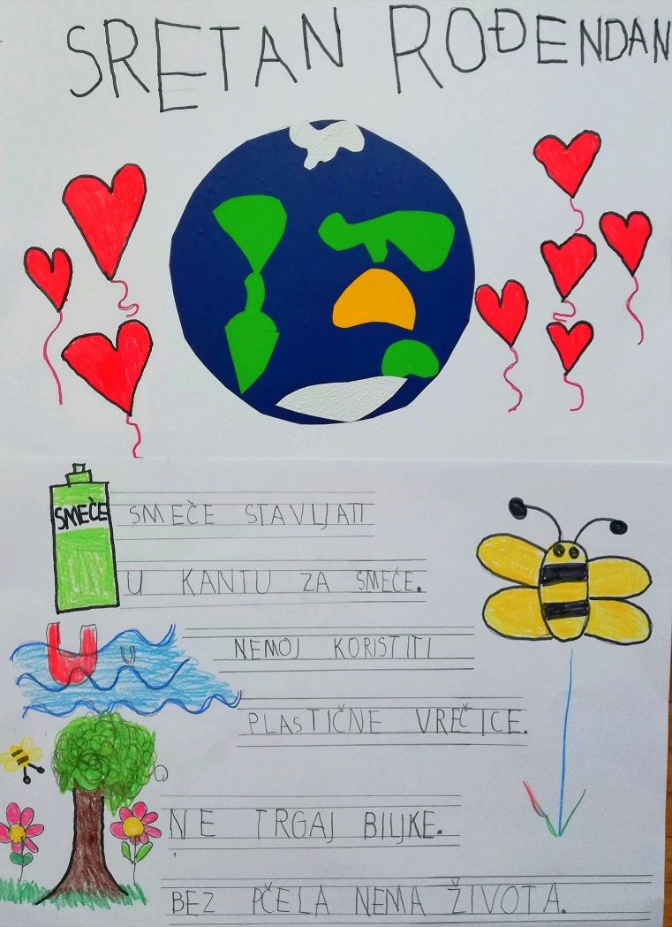 SRETAN ROĐENDAN
SMEČE
SMEČE STAVLJATI
U KANTU ZA SMEČE.
NEMOJ KORISTITI
PLASTIČNE VREČICE.
NE TRGAJ BILJKE.
BEZ PČELA NEMA ŽIVOTA.